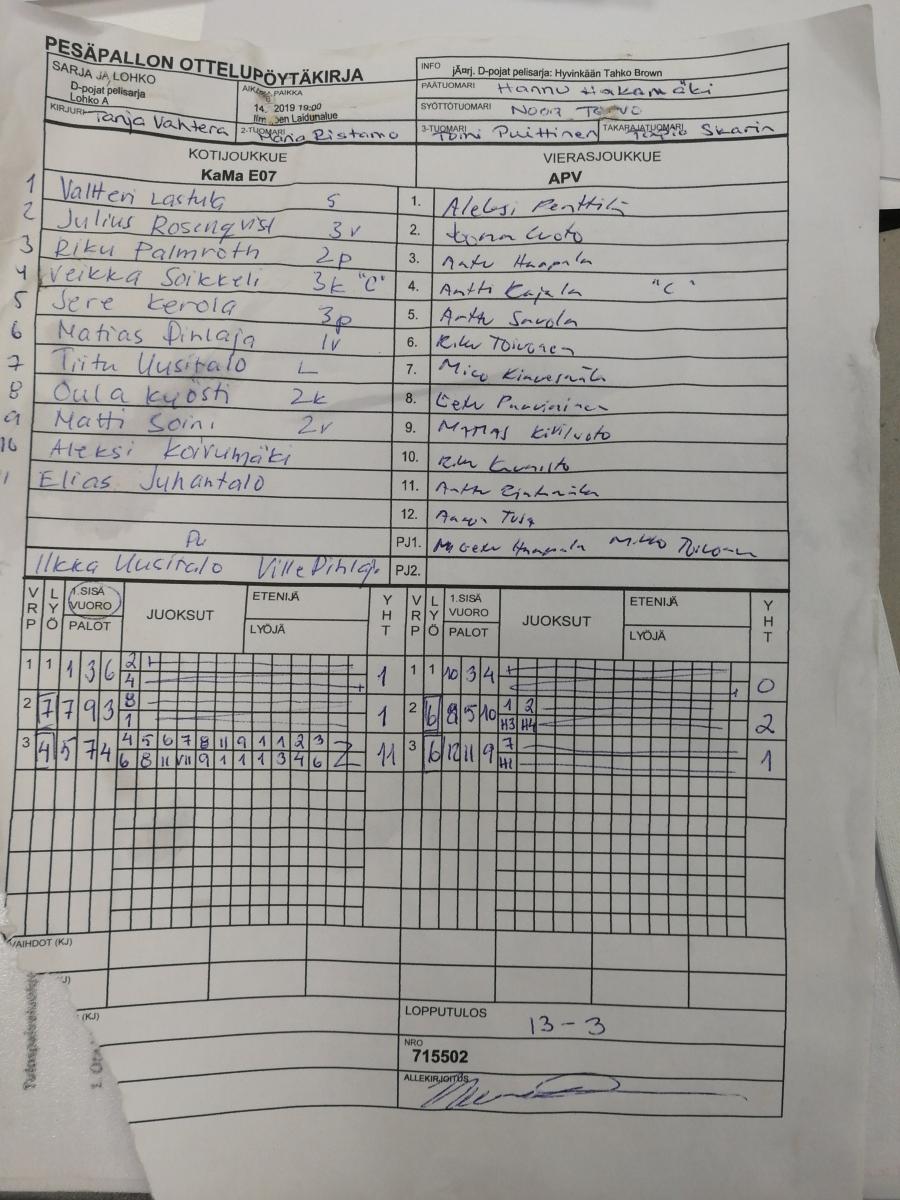 PESÄPALLON OTTELUPÖYTÄKIRJA
SARJA JA LOHKO
D-pojat pelisarja
Lohko A
14. 2019 19:00
Laidunalue
INFO jÄ¤rj. D-pojat pelisarja: Hyvinkään Tahko Brown
PÄÄTUOMARI Hannu Hakamäki
SYÖTTÖTUOMARI
KIRJURI Tanja Vahtera
2-TUOMARI Ristamo
3-TUOMARI Toini Puittinen
TAKARAJATUOMARI Skarin
KOTIJOUKKUE
KaMa E07
VIERASJOUKKUE
APV
1 Valtteri Lastula 5
2 Julius Rosenqvist 3v
3 Riku Palmroth 2p
4 Veikka Soikkeli 3k "C"
5 Jere Kerola 3p
6 Matias Pihlaja 1v
7 Tiitu Uusitalo L
8 Oula Kyösti 2k
9 Matti Soini 2v
10 Aleksi Koivumäki
Elias Juhantalo
PJ
Ilkka Uusitalo Ville Pihlaja
1. Aleksi Penttilä
2. Luoto
3. Anttu Haapala
4. Antti Kajala "C"
5. Anttu Savola
6. Riku Toivonen
7. Mico
8. Eetu
9. Kiviluoto
10. Riku
11. Anttu
12.
PJ1. Haapala Mikko Toivonen
PJ2.
VRP LYÖ 1.SISÄ VUORO PALOT JUOKSUT ETENIJÄ LYÖJÄ YHT
VRP LYÖ 1.SISÄ VUORO PALOT JUOKSUT ETENIJÄ LYÖJÄ YHT
1 1 1 3 6 2 1
4
1 1 10 3 4 0
2 7 7 9 3 8 1
1
2 6 8 5 10 1 2 2
H3 H4
3 4 5 7 4 4 5 6 7 8 11 9 1 1 2 3 11
6 8 11 VII 9 1 1 1 3 4 6
3 6 12 11 9 7 1
VAIHDOT (KJ)
(KJ)
LOPPUTULOS
13-3
NRO
715502
ALLEKIRJOITUS